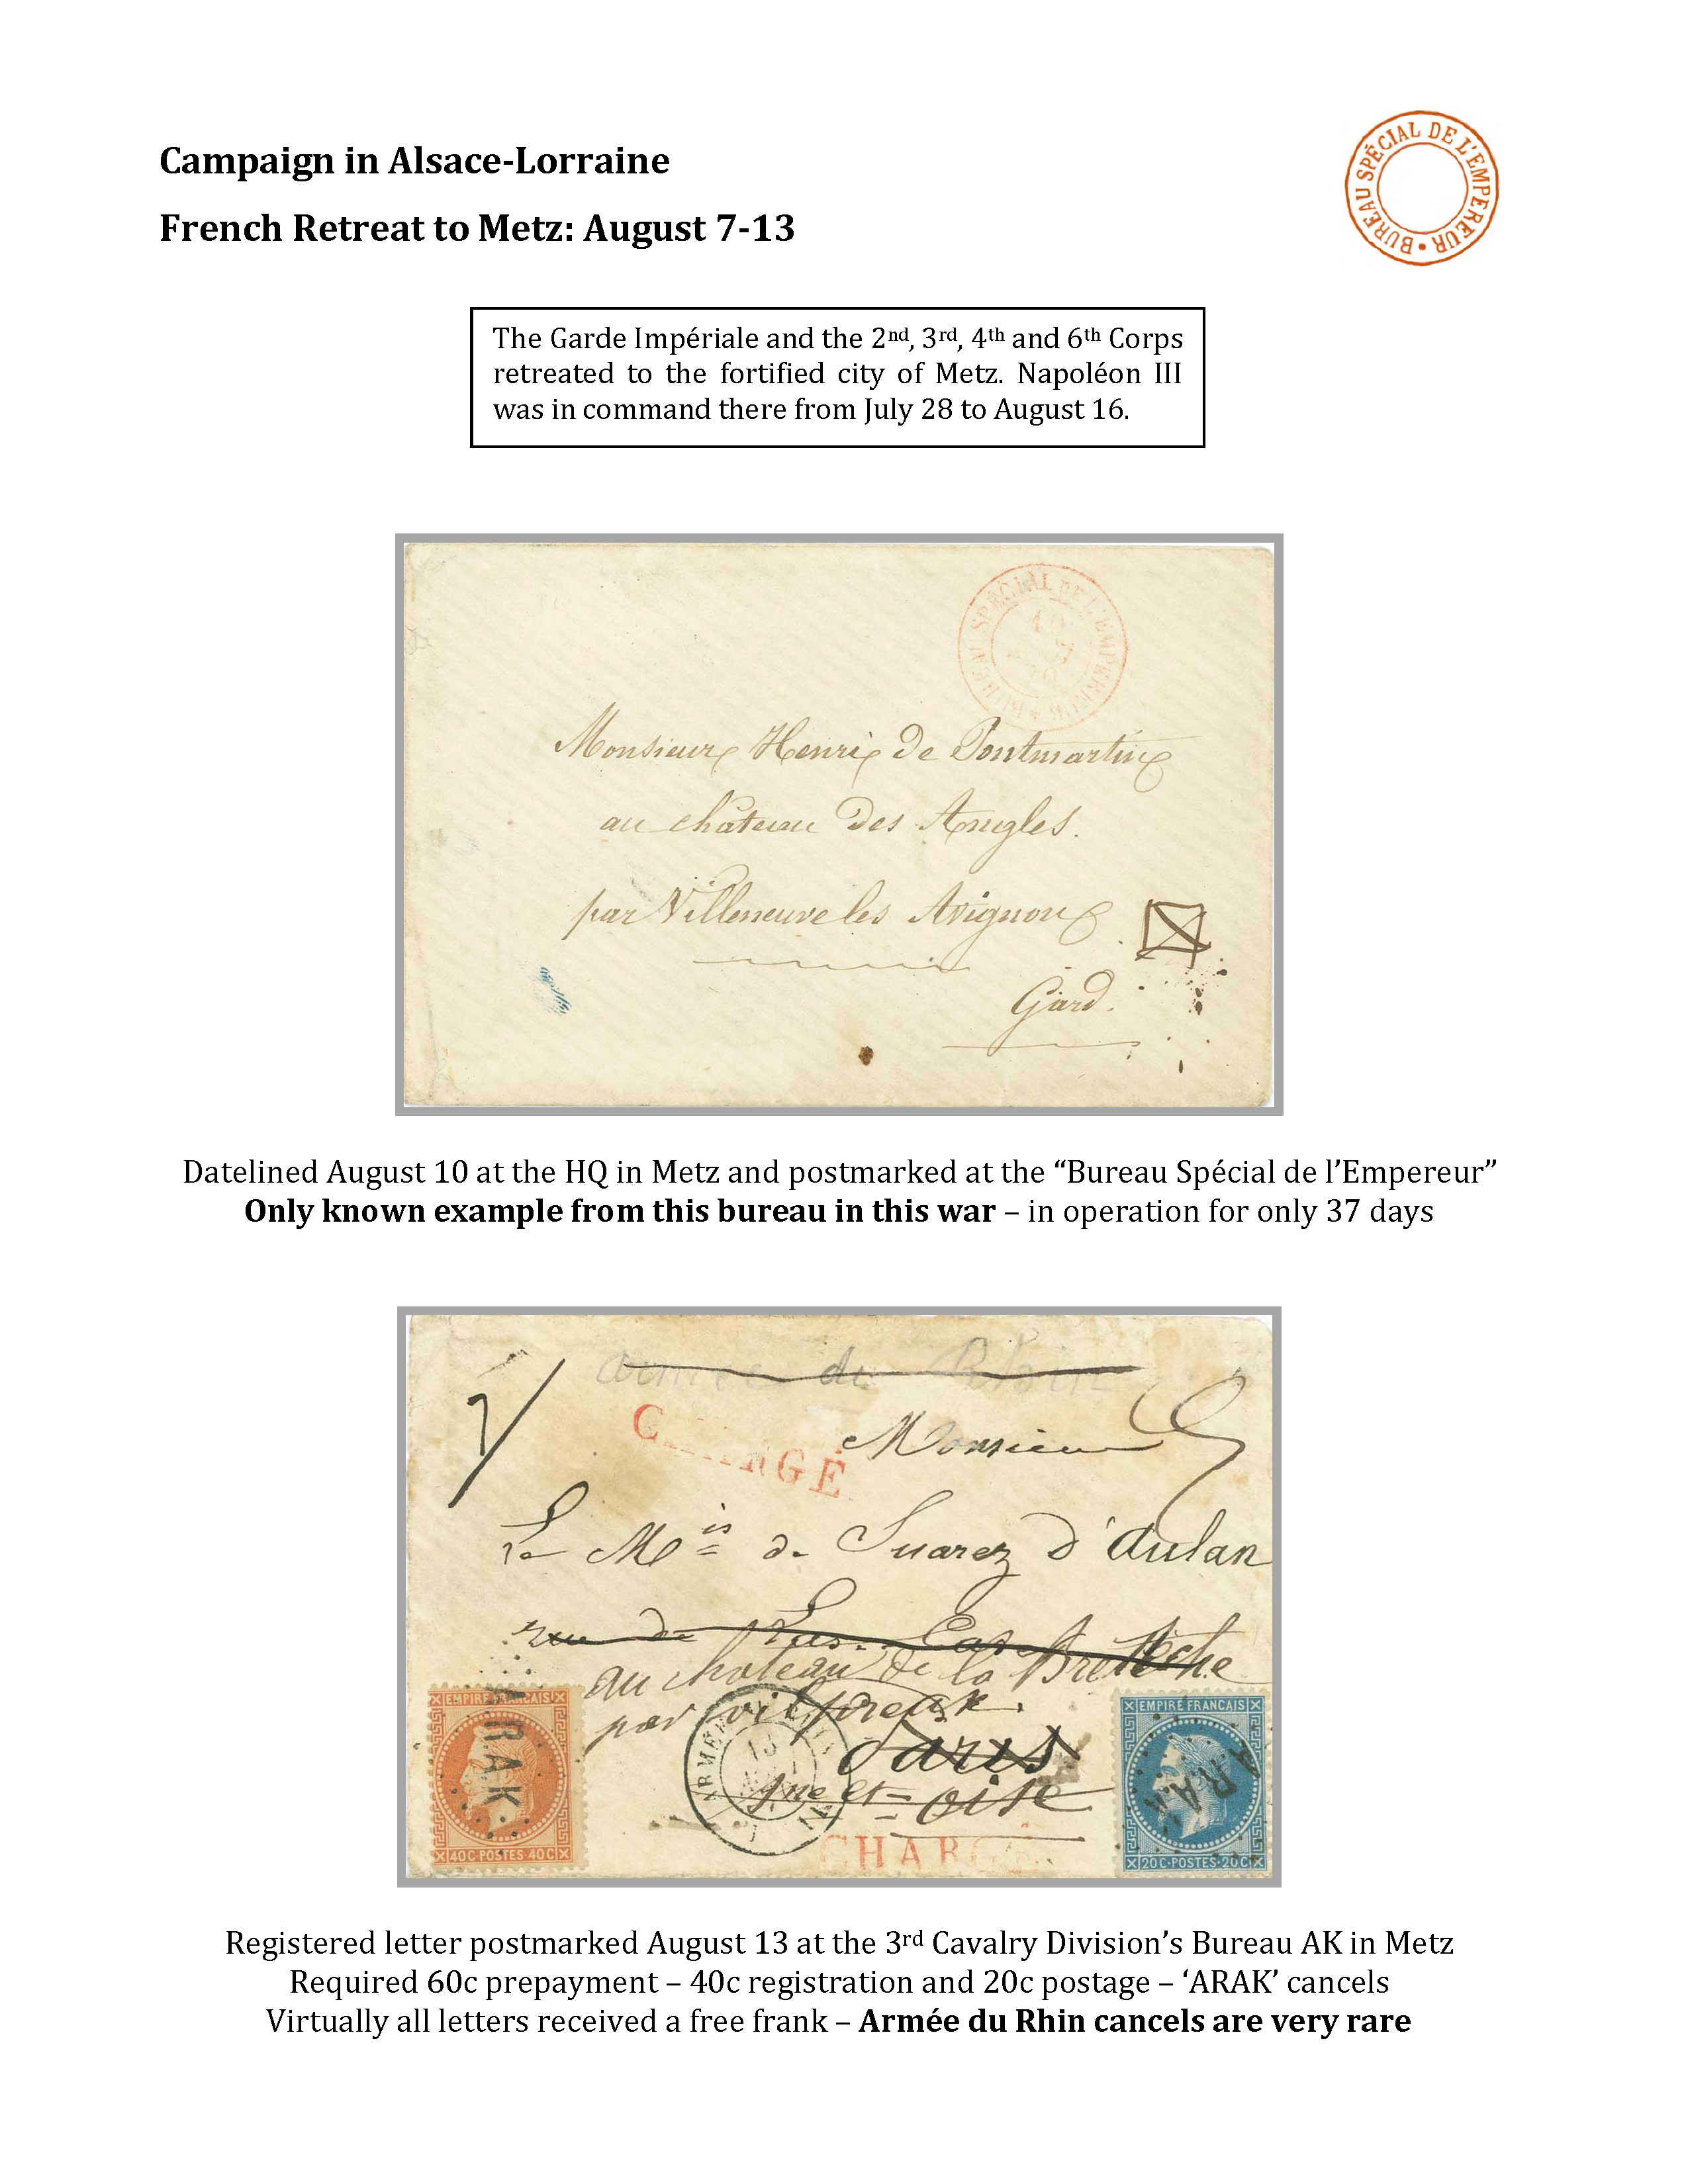 Campaign in Alsace-Lorraine
French Retreat to Metz: August 7-13
BUREAU SPÉCIAL DE L'EMPEREUR •
The Garde Impériale and the 2nd, 3rd, 4th and 6th Corps
retreated to the fortified city of Metz. Napoléon III
was in command there from July 28 to August 16.
BUREAU SPÉCIAL DE L'EMPEREUR
10
Monsieur Henri de Pontmartin
au château des Angles.
par Villeneuve les Avignon
Gard.
Datelined August 10 at the HQ in Metz and postmarked at the “Bureau Spécial de l’Empereur”
Only known example from this bureau in this war – in operation for only 37 days
armée du Rhin
CHARGÉ
Monsieur
Le Mis de Suarez d'Aulan
rue de Las Cases
au chateau de la Bretèche
par Villpreux.
Paris
Sne et Oise
ARMÉE DU RHIN
13
CHARGÉ
EMPIRE FRANCAIS
ARAK
40C POSTES 40C
EMPIRE FRANCAIS
ARAK
20C POSTES 20C
Registered letter postmarked August 13 at the 3rd Cavalry Division’s Bureau AK in Metz
Required 60c prepayment – 40c registration and 20c postage – ‘ARAK’ cancels
Virtually all letters received a free frank – Armée du Rhin cancels are very rare